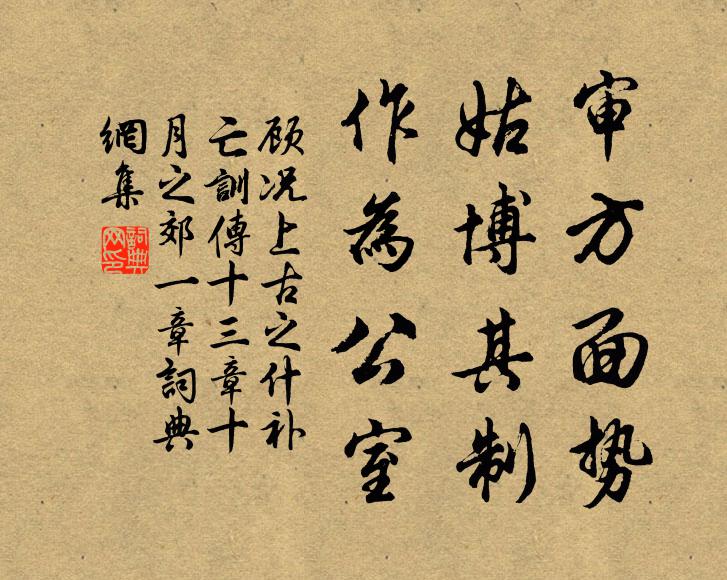 审方面势
姑博其制
作為公室
顾况上古之什补
亡訓傳十三章十
月之郊一章詞典
網集
詞典
网印